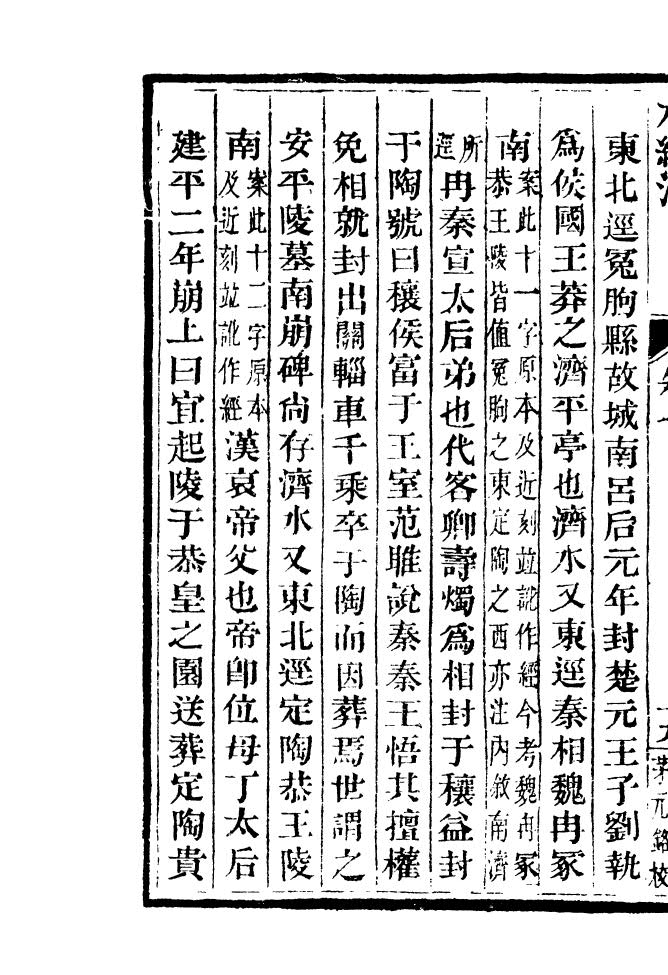 水經注
東北逕冤朐縣故城南呂后元年封楚元王子劉執
爲侯國王莽之濟平亭也濟水又東逕秦相魏冉冢
南案此十一字原本及近刻竝訛作經今考魏冉冢
恭王陵皆值冤朐之東定陶之西亦注內敘南濟
所逕冉秦宣太后弟也代客卿壽燭爲相封于穰益封
于陶號曰穰侯富于王室范雎說秦秦王悟其擅權
免相就封出關輜車千乘卒于陶而因葬焉世謂之
安平陵墓南崩碑尚存濟水又東北逕定陶恭王陵
南案此十二字原本及近刻竝訛作經漢哀帝父也帝卽位母丁太后
建平二年崩上曰宜起陵于恭皇之園送葬定陶貴